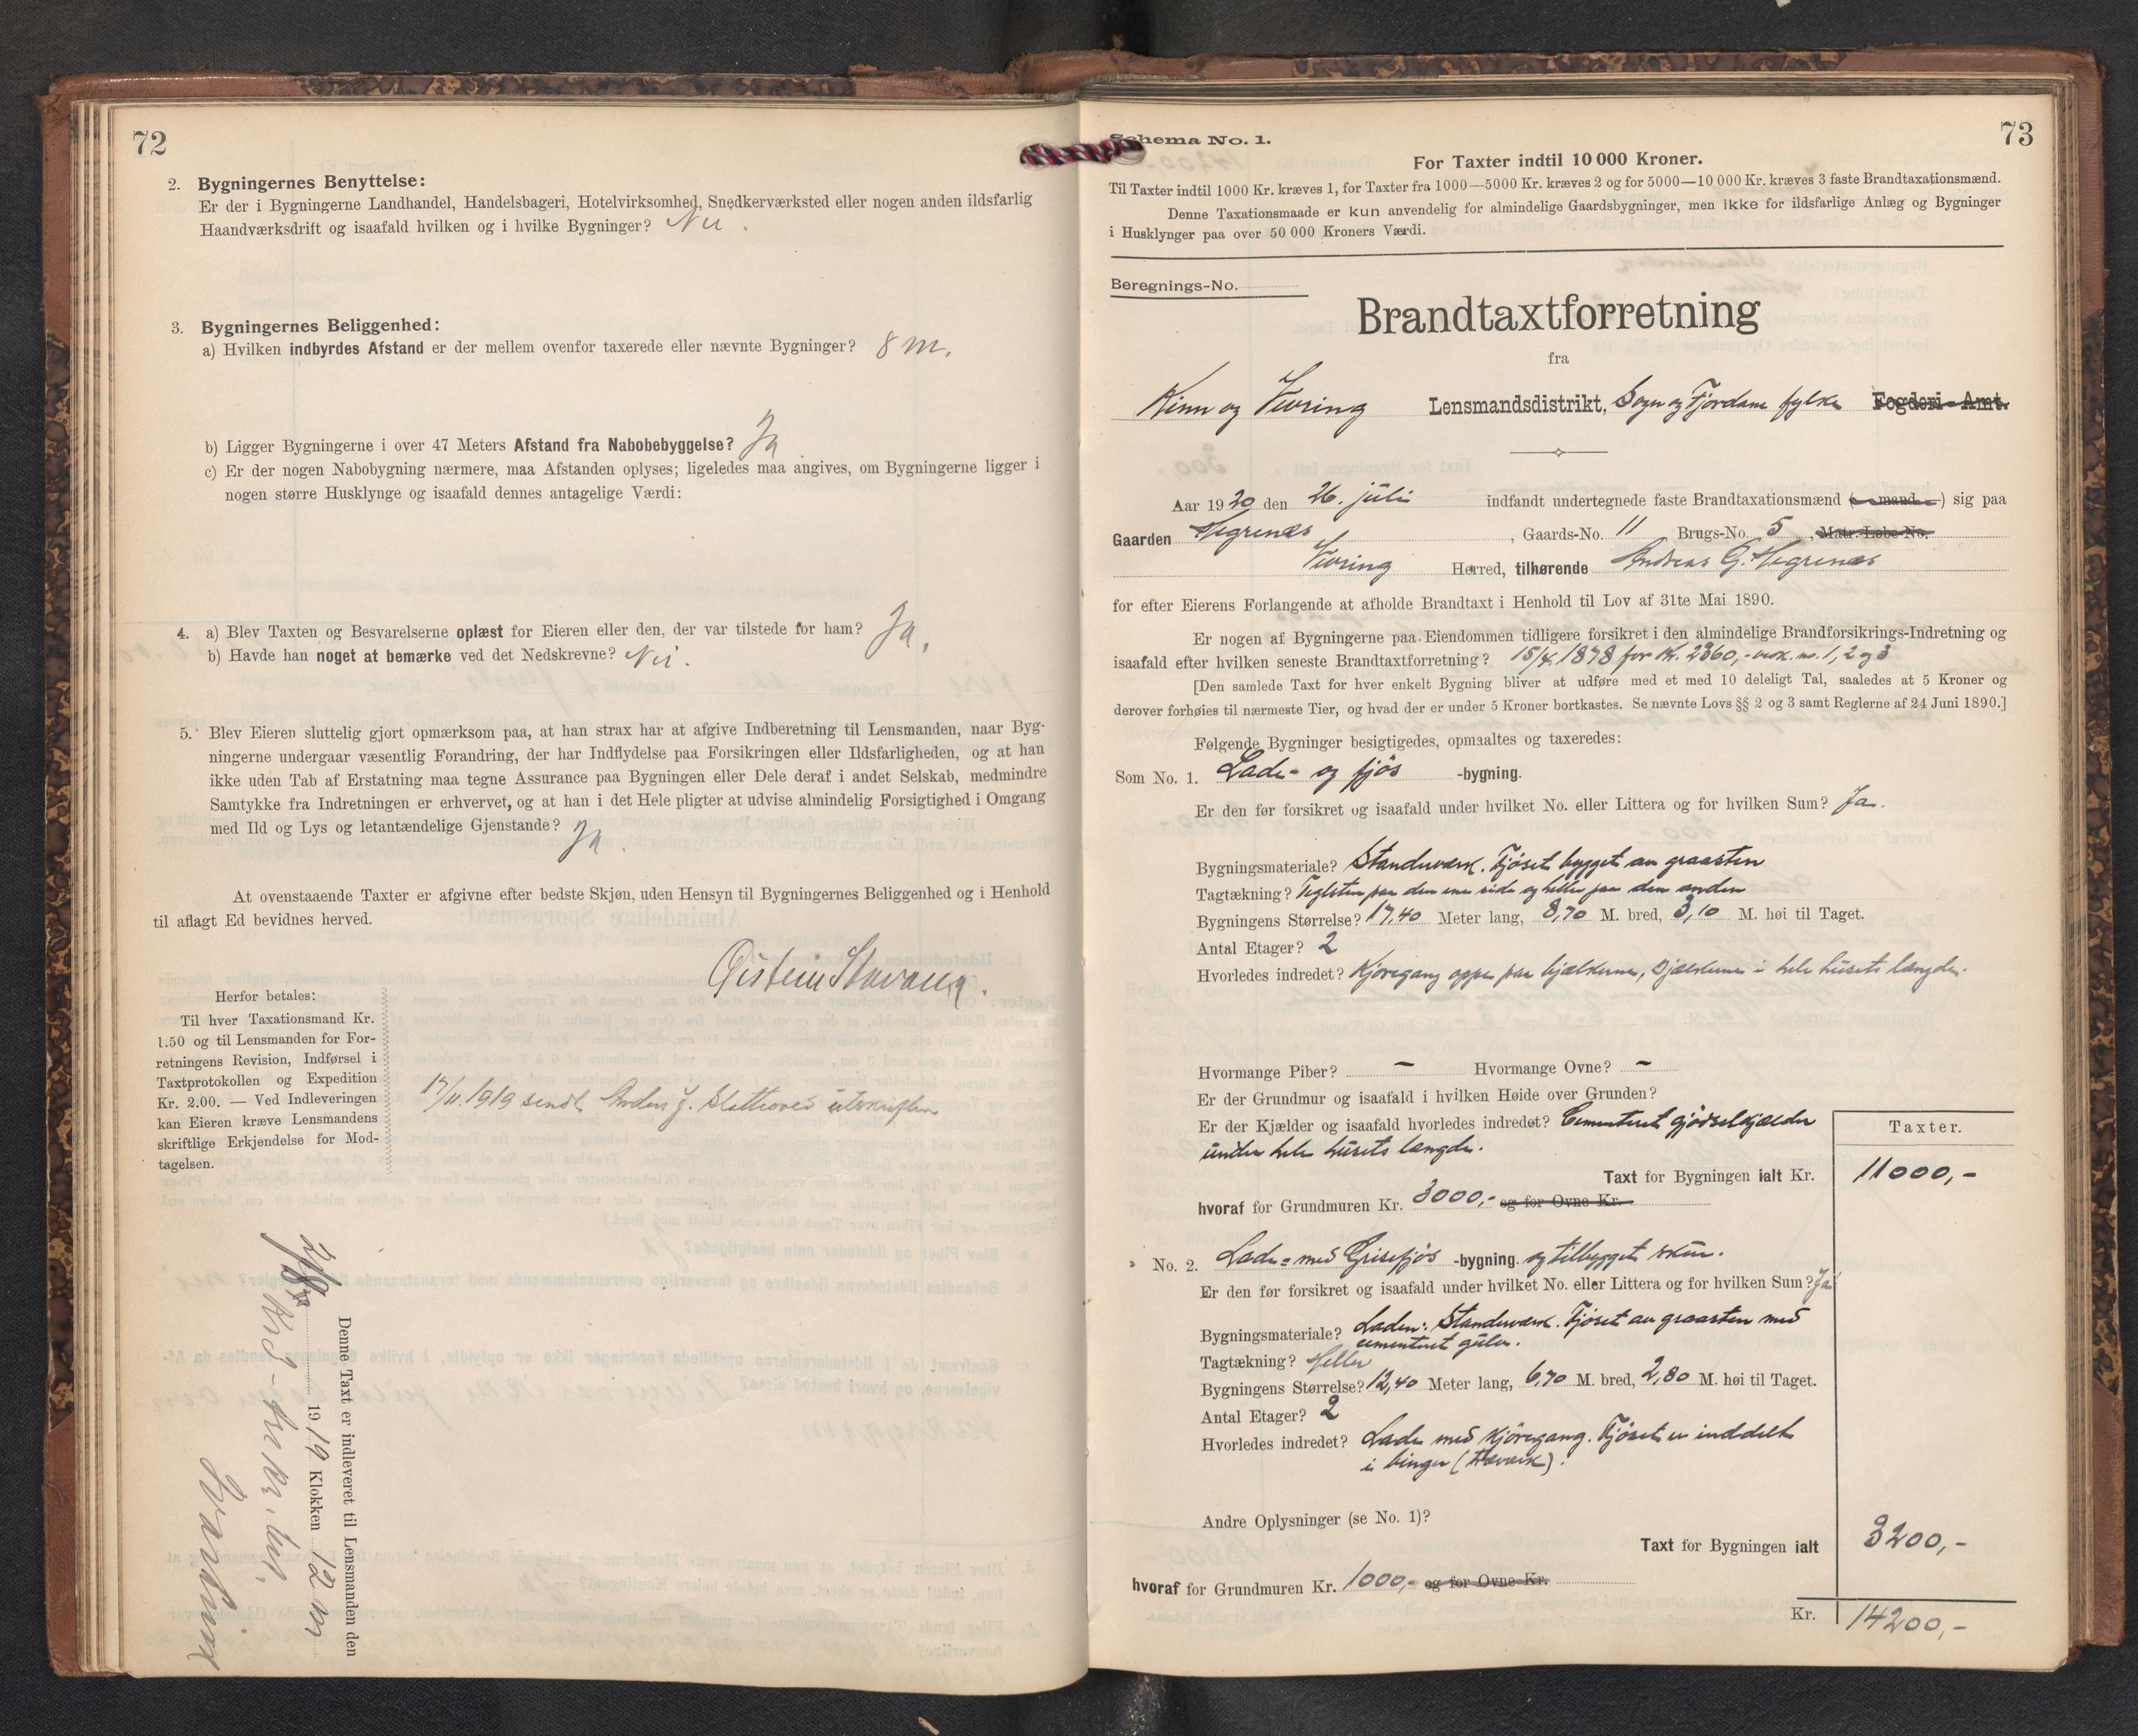 72
2. Bygningernes Benyttelse:
Er der i Bygningerne Landhandel, Handelsbageri, Hotelvirksomhed, Snedkerværksted eller nogen anden ildsfarlig
Haandværksdrift og isaafald hvilken og i hvilke Bygninger? Nei.
3. Bygningernes Beliggenhed:
a) Hvilken indbyrdes Afstand er der mellem ovenfor taxerede eller nævnte Bygninger? 8 m.
b) Ligger Bygningerne i over 47 Meters Afstand fra Nabobebyggelse? Ja
c) Er der nogen Nabobygning nærmere, maa Afstanden oplyses; ligeledes maa angives, om Bygningerne ligger i
nogen større Husklynge og isaafald dennes antagelige Værdi:
4. a) Blev Taxten og Besvarelserne oplæst for Eieren eller den, der var tilstede for ham? Ja.
b) Havde han noget at bemærke ved det Nedskrevne? Nei.
5. Blev Eieren sluttelig gjort opmærksom paa, at han strax har at afgive Indberetning til Lensmanden, naar Byg-
ningerne undergaar væsentlig Forandring, der har Indflydelse paa Forsikringen eller Ildsfarligheden, og at han
ikke uden Tab af Erstatning maa tegne Assurance paa Bygningen eller Dele deraf i andet Selskab, medmindre
Samtykke fra Indretningen er erhvervet, og at han i det Hele pligter at udvise almindelig Forsigtighed i Omgang
med Ild og Lys og letantændelige Gjenstande? Ja.
At ovenstaaende Taxter er afgivne efter bedste Skjøn, uden Hensyn til Bygningernes Beliggenhed og i Henhold
til aflagt Ed bevidnes herved.
Øistein Stavang.
Herfor betales:
Til hver Taxationsmand Kr.
1.50 og til Lensmanden for For-
retningens Revision, Indførsel i
Taxtprotokollen og Expedition
Kr. 2.00. — Ved Indleveringen
kan Eieren kræve Lensmandens
skriftlige Erkjendelse for Mod-
tagelsen.
17/11.1919 sendt Anders J. utskriften
Denne Taxt er indleveret til Lensmanden den
1919 Klokken 12 m
73
Schema No. 1.
For Taxter indtil 10 000 Kroner.
Til Taxter indtil 1000 Kr. kræves 1, for Taxter fra 1000—5000 Kr. kræves 2 og for 5000—10 000 Kr. kræves 3 faste Brandtaxationsmænd.
Denne Taxationsmaade er kun anvendelig for almindelige Gaardsbygninger, men ikke for ildsfarlige Anlæg og Bygninger
i Husklynger paa over 50 000 Kroners Værdi.
Beregnings-No.
Brandtaxtforretning
fra
Kinn og Vevring Lensmandsdistrikt, Sogn og Fjordane fylke Fogderi Amt.
Aar 1920 den 26. juli indfandt undertegnede faste Brandtaxationsmænd ( mand ) sig paa
Gaarden Hegrenæs, Gaards-No. 11 Brugs-No. 5, Matr. Løbe-No.
Vevring Herred, tilhørende Andreas G. Hegrenæs
for efter Eierens Forlangende at afholde Brandtaxt i Henhold til Lov af 31te Mai 1890.
Er nogen af Bygningerne paa Eiendommen tidligere forsikret i den almindelige Brandforsikrings-Indretning og
isaafald efter hvilken seneste Brandtaxtforretning? 15/4.1878 for kr. 2360,- no. 1, 2 og 3
[Den samlede Taxt for hver enkelt Bygning bliver at udføre med et med 10 deleligt Tal, saaledes at 5 Kroner og
derover forhøies til nærmeste Tier, og hvad der er under 5 Kroner bortkastes. Se nævnte Lovs §§ 2 og 3 samt Reglerne af 24 Juni 1890.]
Følgende Bygninger besigtigedes, opmaaltes og taxeredes:
Som No. 1. Lade- og fjøs -bygning.
Er den før forsikret og isaafald under hvilket No. eller Littera og for hvilken Sum? Ja.
Bygningsmateriale? Standerværk. Fjøset bygget av graasten
Tagtækning? Teglsten paa den ene side og heller paa den anden
Bygningens Størrelse? 17,40 Meter lang, 8,70 M. bred, 3,10 M. høi til Taget.
Antal Etager? 2
Hvorledes indredet? Kjøregang oppe paa bjælkerne, bjælkerne i hele husets længde.
Hvormange Piber? – Hvormange Ovne? –
Er der Grundmur og isaafald i hvilken Høide over Grunden?
Er der Kjælder og isaafald hvorledes indredet? Cementeret gjødselkjælder
under hele husets længde.
Taxter.
Taxt for Bygningen ialt Kr. 11000,-
hvoraf for Grundmuren Kr. 3000,- og for Ovne Kr.
No. 2. Lade- med Grisefjøs -bygning. og tilbygget skur.
Er den før forsikret og isaafald under hvilket No. eller Littera og for hvilken Sum? Ja
Bygningsmateriale? Laden: Standerværk. Fjøset av graasten med
cementeret gulv.
Tagtækning? Heller
Bygningens Størrelse? 12,40 Meter lang, 6,70 M. bred, 2,80 M. høi til Taget.
Antal Etager? 2
Hvorledes indredet? Lade med kjøregang. Fjøset er inddelt
i binger (træværk).
Andre Oplysninger (se No. 1)?
Taxt for Bygningen ialt 3200,-
hvoraf for Grundmuren Kr. 1000,- og for Ovne Kr.
Kr. 14200,-